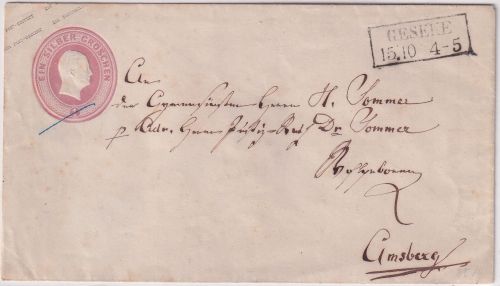 EIN SILBER GROSCHEN
GESEKE
15.10 4-5
An
den Gymnasiasten Herrn H. Sommer
p Adr. Herrn Justiz-Rath Dr Sommer
Wohlgeboren
Arnsberg